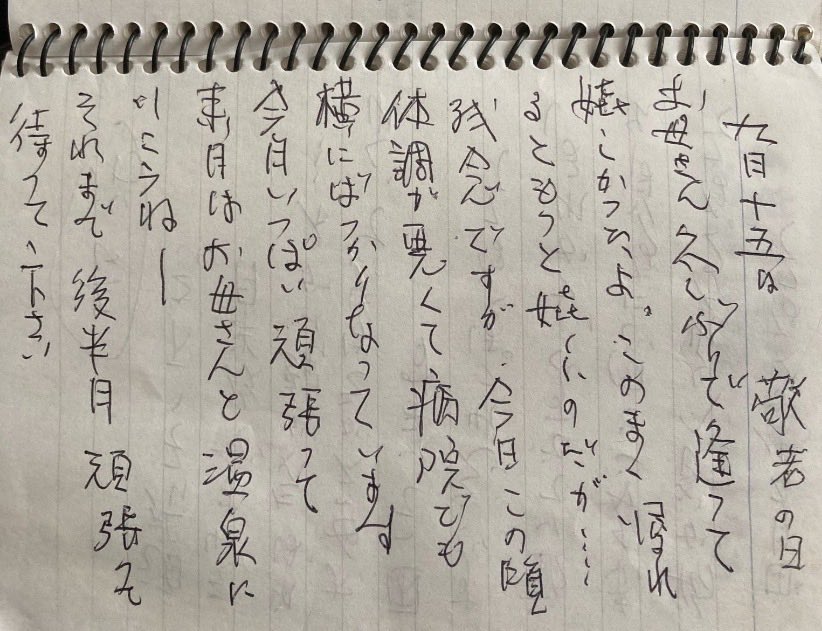 九月十五日 敬老の日
お母さん久しぶりで逢って
嬉しかったよ。このまゝ居れ
るともっと嬉しいのだが……
残念ですが、今日この頃
体調が悪くて、病院でも
横にばっかりなっています
今月いっぱい頑張って
来月はお母さんと温泉に
いこうねー
それまで後半月頑張って
待ってゝ下さい